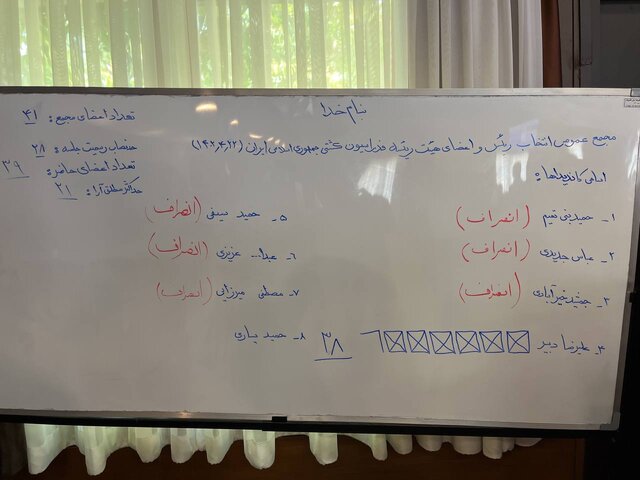 بنام خدا
تعداد اعضای مجمع: ۴۱
مجمع عمومی انتخاب رئیس و اعضای هیئت رئیسه فدراسیون کشتی جمهوری اسلامی ایران (۱۴۰۲٫۴٫۲۲)
حد نصاب رسمیت جلسه: ۲۸
تعداد اعضای حاضر: ۳۹
حداکثر مطلق آرا: ۲۱
اسامی کاندیداها:
۱- حمید بنی تمیم (انصراف)
۲- عباس جدیدی (انصراف)
۳- جمشید خیرآبادی (انصراف)
۴- علیرضا دبیر ۳۸
۵- حمید سیفی (انصراف)
۶- عبدا... عزیزی (انصراف)
۷- مصطفی میرزایی (انصراف)
۸- حمید یاری